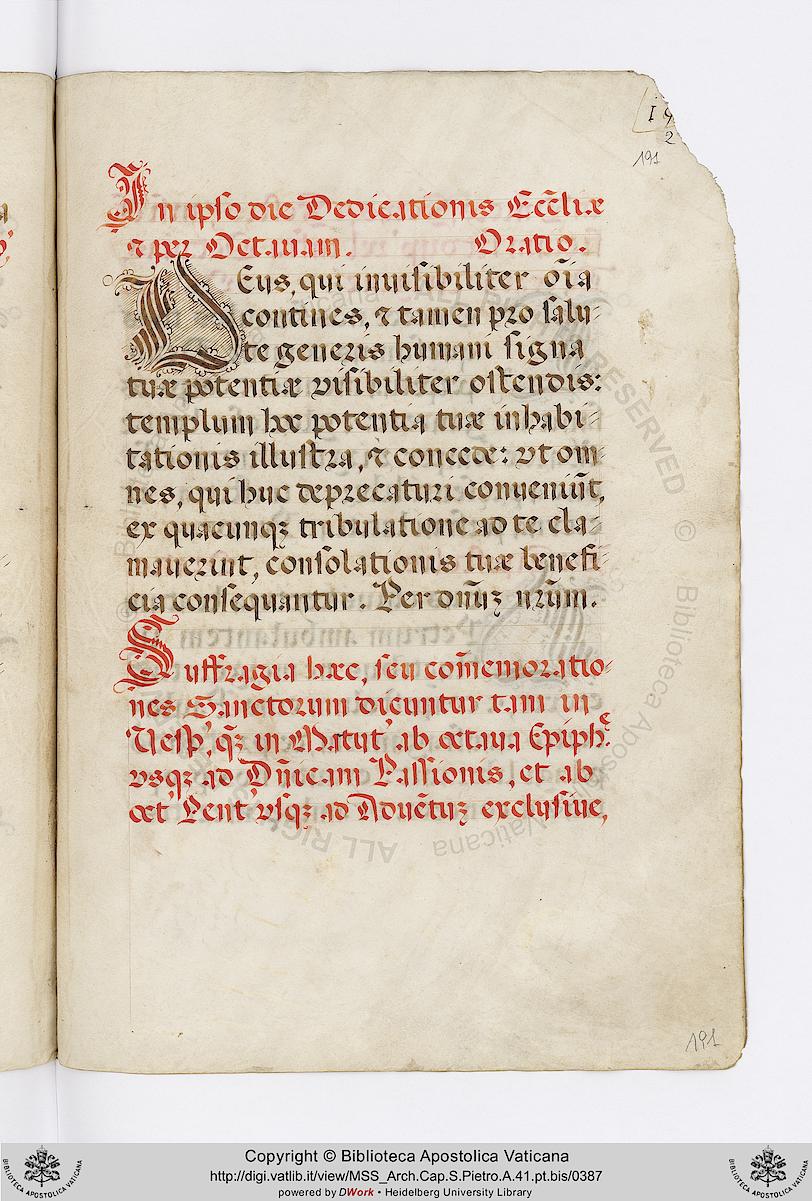 191
In ipso die Dedicationis Ecc̃liæ
⁊ per Octauam. Oratio.
DEus, qui inuisibiliter oĩa
contines, ⁊ tamen pro salu-
te generis humani signa
tuæ potentiæ visibiliter ostendis:
templum hoc potentia tuæ inhabi-
tationis illustra, ⁊ concede: vt om-
nes, qui huc deprecaturi conueniũt,
ex quacunqꝫ tribulatione ad te cla-
mauerint, consolationis tuæ benefi-
cia consequantur. Per dñuꝫ nr̃um.
Suffragia hæc, seu com̃emoratio-
nes Sanctorum dicuntur tam in
Vesp', qꝫ̃ in Matut' ab octaua Epiph.ᵉ
vsqꝫ ad Dñicam Passionis, et ab
oct Pent' vsqꝫ ad Aduẽtuꝫ exclusiue,
191
Copyright © Biblioteca Apostolica Vaticana
http://digi.vatlib.it/view/MSS_Arch.Cap.S.Pietro.A.41.pt.bis/0387
powered by DWork • Heidelberg University Library